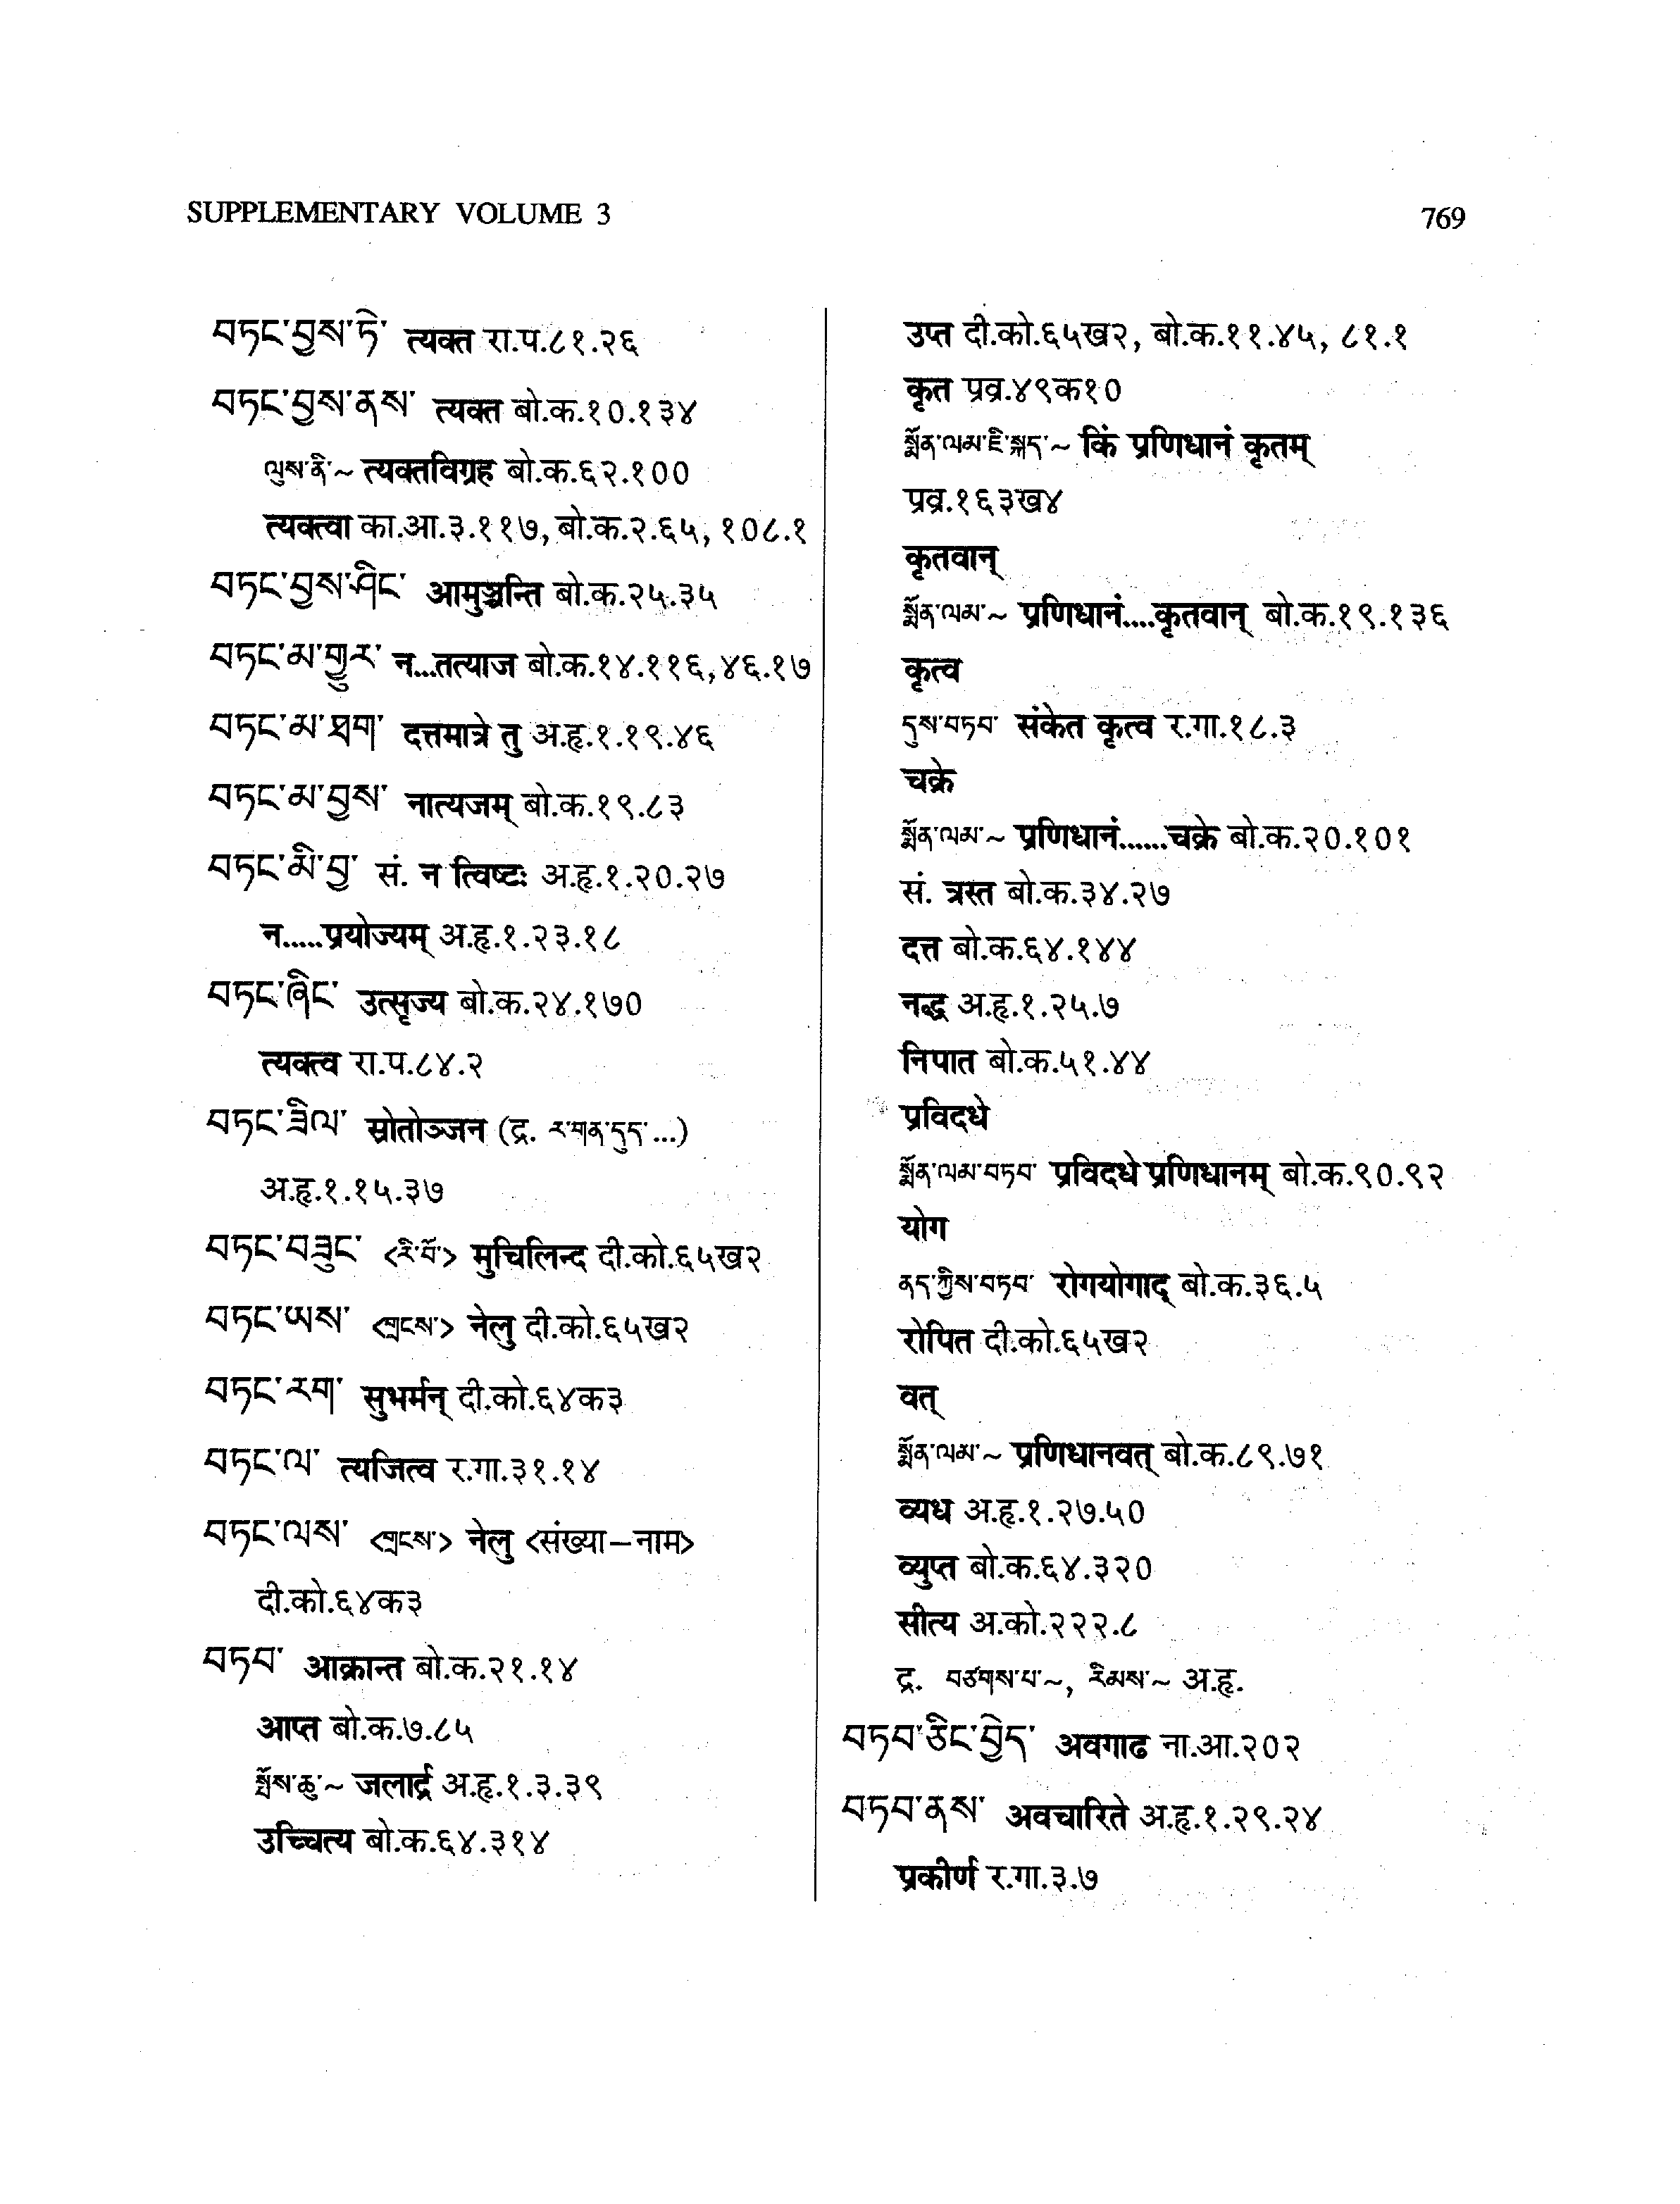 SUPPLEMENTARY VOLUME 3
769
བཏང་བྱས་ཏེ་ त्यक्त रा.प.८१.२६
བཏང་བྱས་ནས་ त्यक्त बो.क.१०.१३४
ལུས་ནི་~ त्यक्तविग्रह बो.क.६२.१००
त्यक्त्वा का.आ.३.११७, बो.क.२.६५, १०८.१
བཏང་བྱས་ཤིང་ आमुञ्चन्ति बो.क.२५.३५
བཏང་མ་གྱུར་ न...तत्याज बो.क.१४.११६,४६.१७
བཏང་མ་ཐག་ दत्तमात्रे तु अ.हृ.१.१९.४६
བཏང་མ་བྱས་ नात्यजम् बो.क.१९.८३
བཏང་མི་བྱ་ सं. न त्विष्टः अ.हृ.१.२०.२७
न.....प्रयोज्यम् अ.हृ.१.२३.१८
བཏང་ཞིང་ उत्सृज्य बो.क.२४.१७०
त्यक्त्व रा.प.८४.२
བཏང་ཟིལ་ स्रोतोञ्जन (द्र. ར་གན་དུད་...)
अ.हृ.१.१५.३७
བཏང་བཟུང་ <རི་བོ་> मुचिलिन्द दी.को.६५ख२
བཏང་ཡས་ <གྲངས་> नेलु दी.को.६५ख२
བཏང་རག་ सुभर्मन् दी.को.६४क३
བཏང་ལ་ त्यजित्व र.गा.३१.१४
བཏང་ལས་ <གྲངས་> नेलु <संख्या–नाम>
दी.को.६४क३
བཏབ་ आक्रान्त बो.क.२१.१४
आप्त बो.क.७.८५
སྤོས་ཆུ་~ जलार्द्र अ.हृ.१.३.३९
उच्चित्य बो.क.६४.३१४
उप्त दी.को.६५ख२, बो.क.११.४५, ८१.१
कृत प्रव्र.४९क१०
སྨོན་ལམ་ཇི་སྐད་~ किं प्रणिधानं कृतम्
प्रव्र.१६३ख४
कृतवान्
སྨོན་ལམ་~ प्रणिधानं....कृतवान् बो.क.१९.१३६
कृत्व
དུས་བཏབ་ संकेत कृत्व र.गा.१८.३
चक्रे
སྨོན་ལམ་~ प्रणिधानं......चक्रे बो.क.२०.१०१
सं. त्रस्त बो.क.३४.२७
दत्त बो.क.६४.१४४
नद्ध अ.हृ.१.२५.७
निपात बो.क.५१.४४
प्रविदधे
སྨོན་ལམ་བཏབ་ प्रविदधे प्रणिधानम् बो.क.९०.९२
योग
ནད་ཀྱིས་བཏབ་ रोगयोगाद् बो.क.३६.५
रोपित दी.को.६५ख२
वत्
སྨོན་ལམ་~ प्रणिधानवत् बो.क.८९.७१
व्यध अ.हृ.१.२७.५०
व्युप्त बो.क.६४.३२०
सीत्य अ.को.२२२.८
द्र. བཙགས་པ་~, རིམས་~ अ.हृ.
བཏབ་ཅིང་བྱེད་ अवगाढ ना.आ.२०२
བཏབ་ནས་ अवचारिते अ.हृ.१.२९.२४
प्रकीर्ण र.गा.३.७